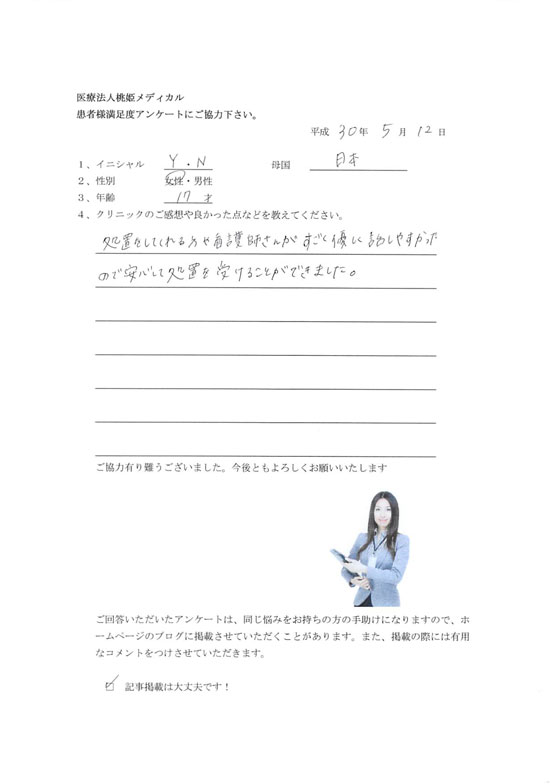 医療法人桃姫メディカル
患者様満足度アンケートにご協力下さい。
平成 30年 5月 12日
1、イニシャル Y・N 母国 日本
2、性別 女性・男性
3、年齢 17才
4、クリニックのご感想や良かった点などを教えてください。
処置をしてくれる方や看護師さんがすごく優しく話しやすかった
ので安心して処置を受けることができました。
ご協力有り難うございました。今後ともよろしくお願いいたします
ご回答いただいたアンケートは、同じ悩みをお持ちの方の手助けになりますので、ホ
ームページのブログに掲載させていただくことがあります。また、掲載の際には有用
なコメントをつけさせていただきます。
☑ 記事掲載は大丈夫です！